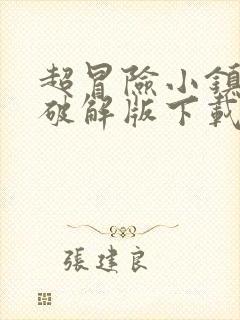 超冒險小鎮
破解版下載
張建良